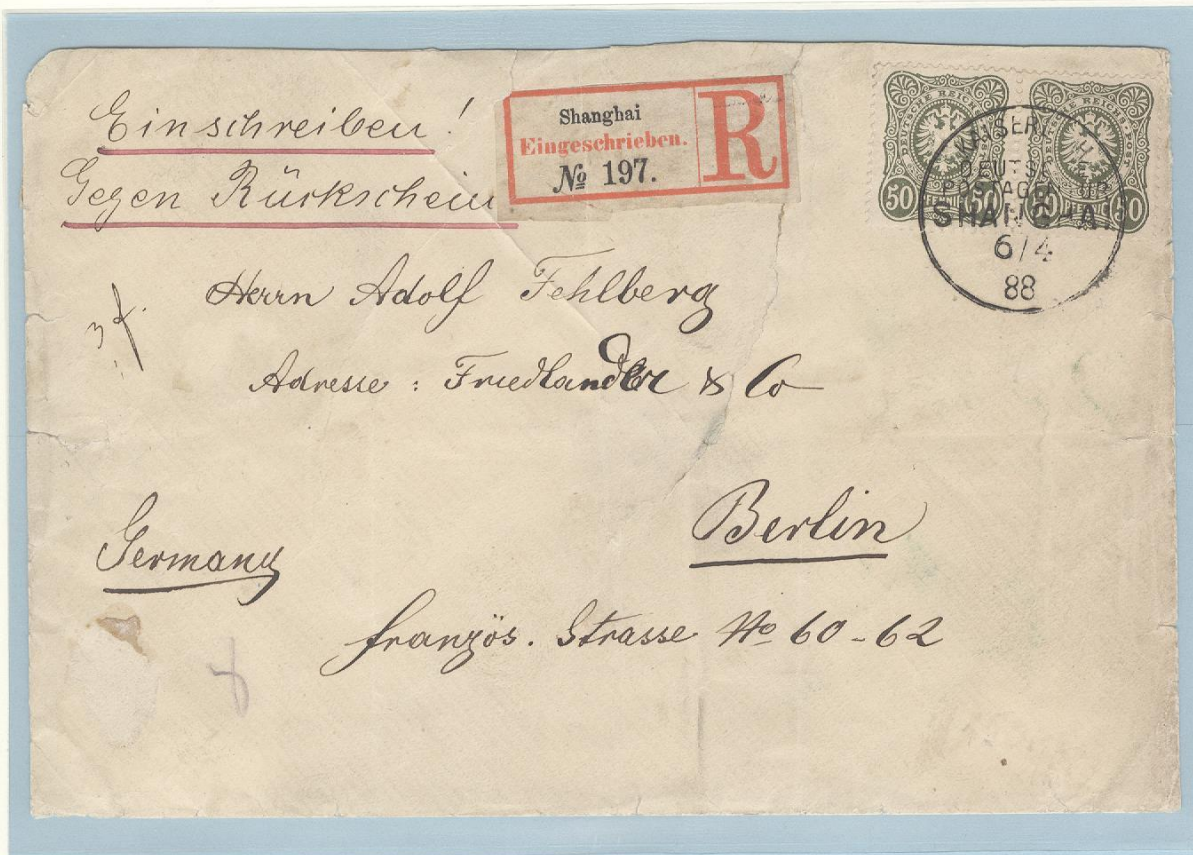 Einschreiben!
Gegen Rückschein
Shanghai
Eingeschrieben.
№ 197.
R
DEUTSCHE REICHS-POST
50 PFENNIG 50
DEUTSCHE REICHS-POST
50 PFENNIG 50
KAISERL
DEUTSCHE
POSTAGENTUR
SHANGHAI
6/4
88
Herrn Adolf Fehlberg
Adresse : Friedlander & Co
Berlin
Germany
französ. Strasse No 60-62